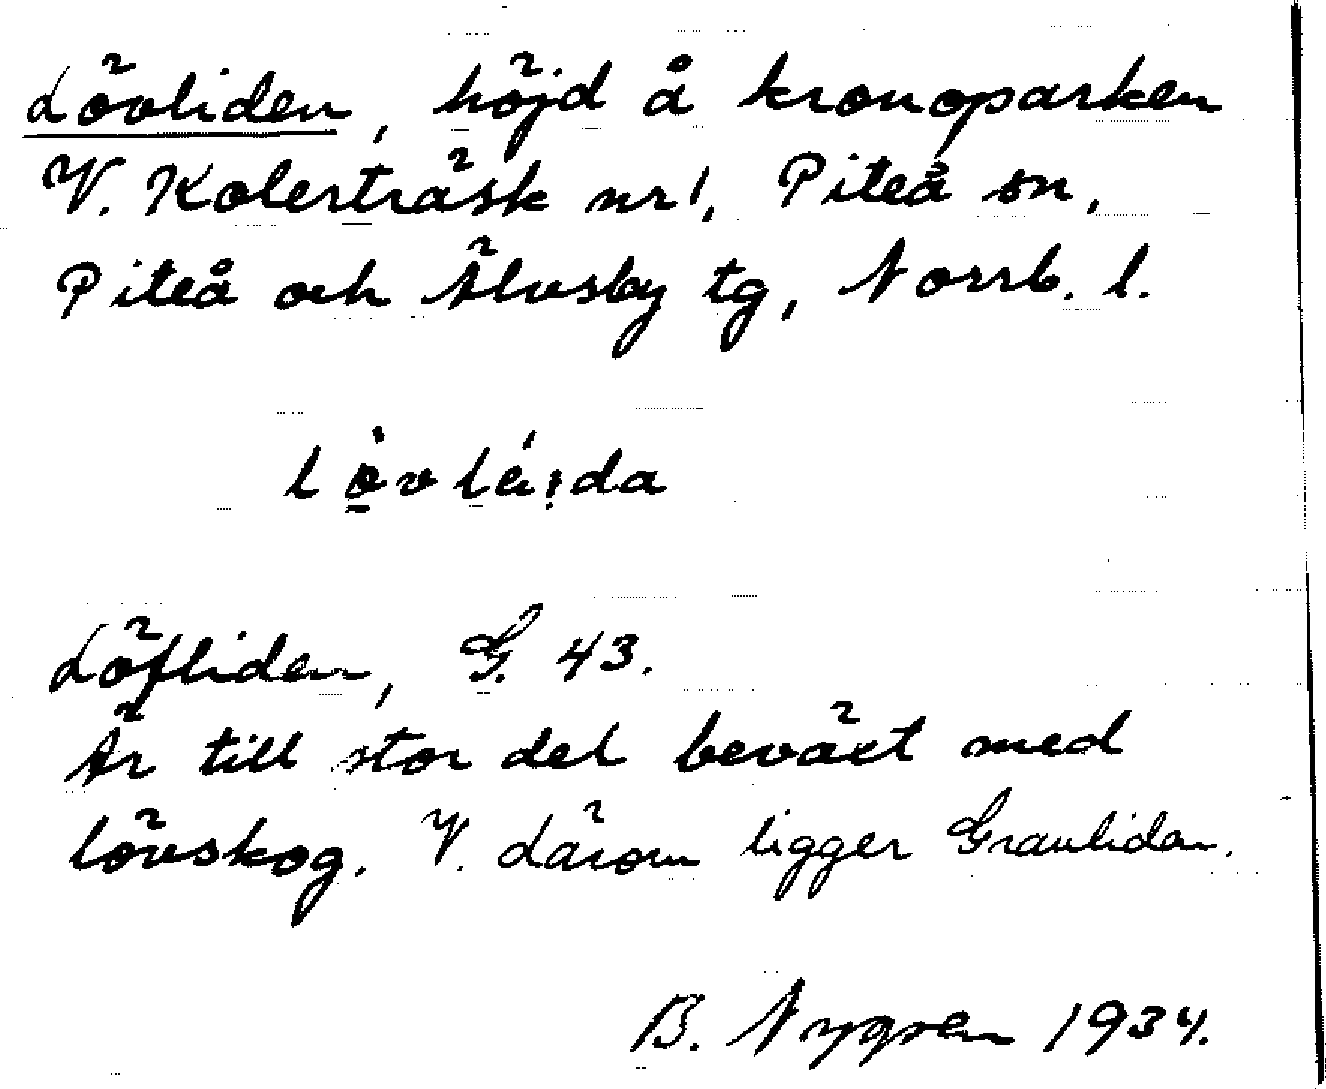 Lövliden, höjd å kronoparken
V. Kolerträsk nr 1, Piteå sn,
Piteå och Älvsby tg, Norrb. l.
Löfliden, G. 43.
Är till stor del beväxt med
lövskog. V. därom ligger Granlidan.
B. Nygren 1934.